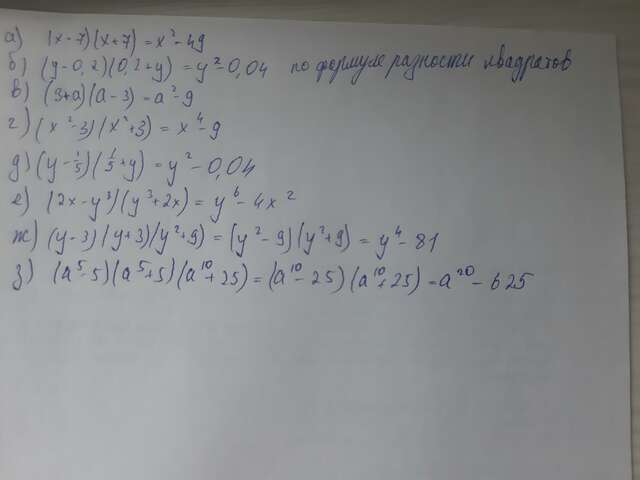 а) (x-7)(x+7) = x² - 49
б) (y-0,2)(0,2+y) = y² - 0,04 по формуле разности квадратов
в) (3+a)(a-3) = a² - 9
г) (x²-3)(x²+3) = x⁴ - 9
д) (y - 1/5)(1/5 + y) = y² - 0,04
е) (2x-y³)(y³+2x) = y⁶ - 4x²
ж) (y-3)(y+3)(y²+9) = (y²-9)(y²+9) = y⁴ - 81
з) (a⁵-5)(a⁵+5)(a¹⁰+25) = (a¹⁰-25)(a¹⁰+25) = a²⁰ - 625